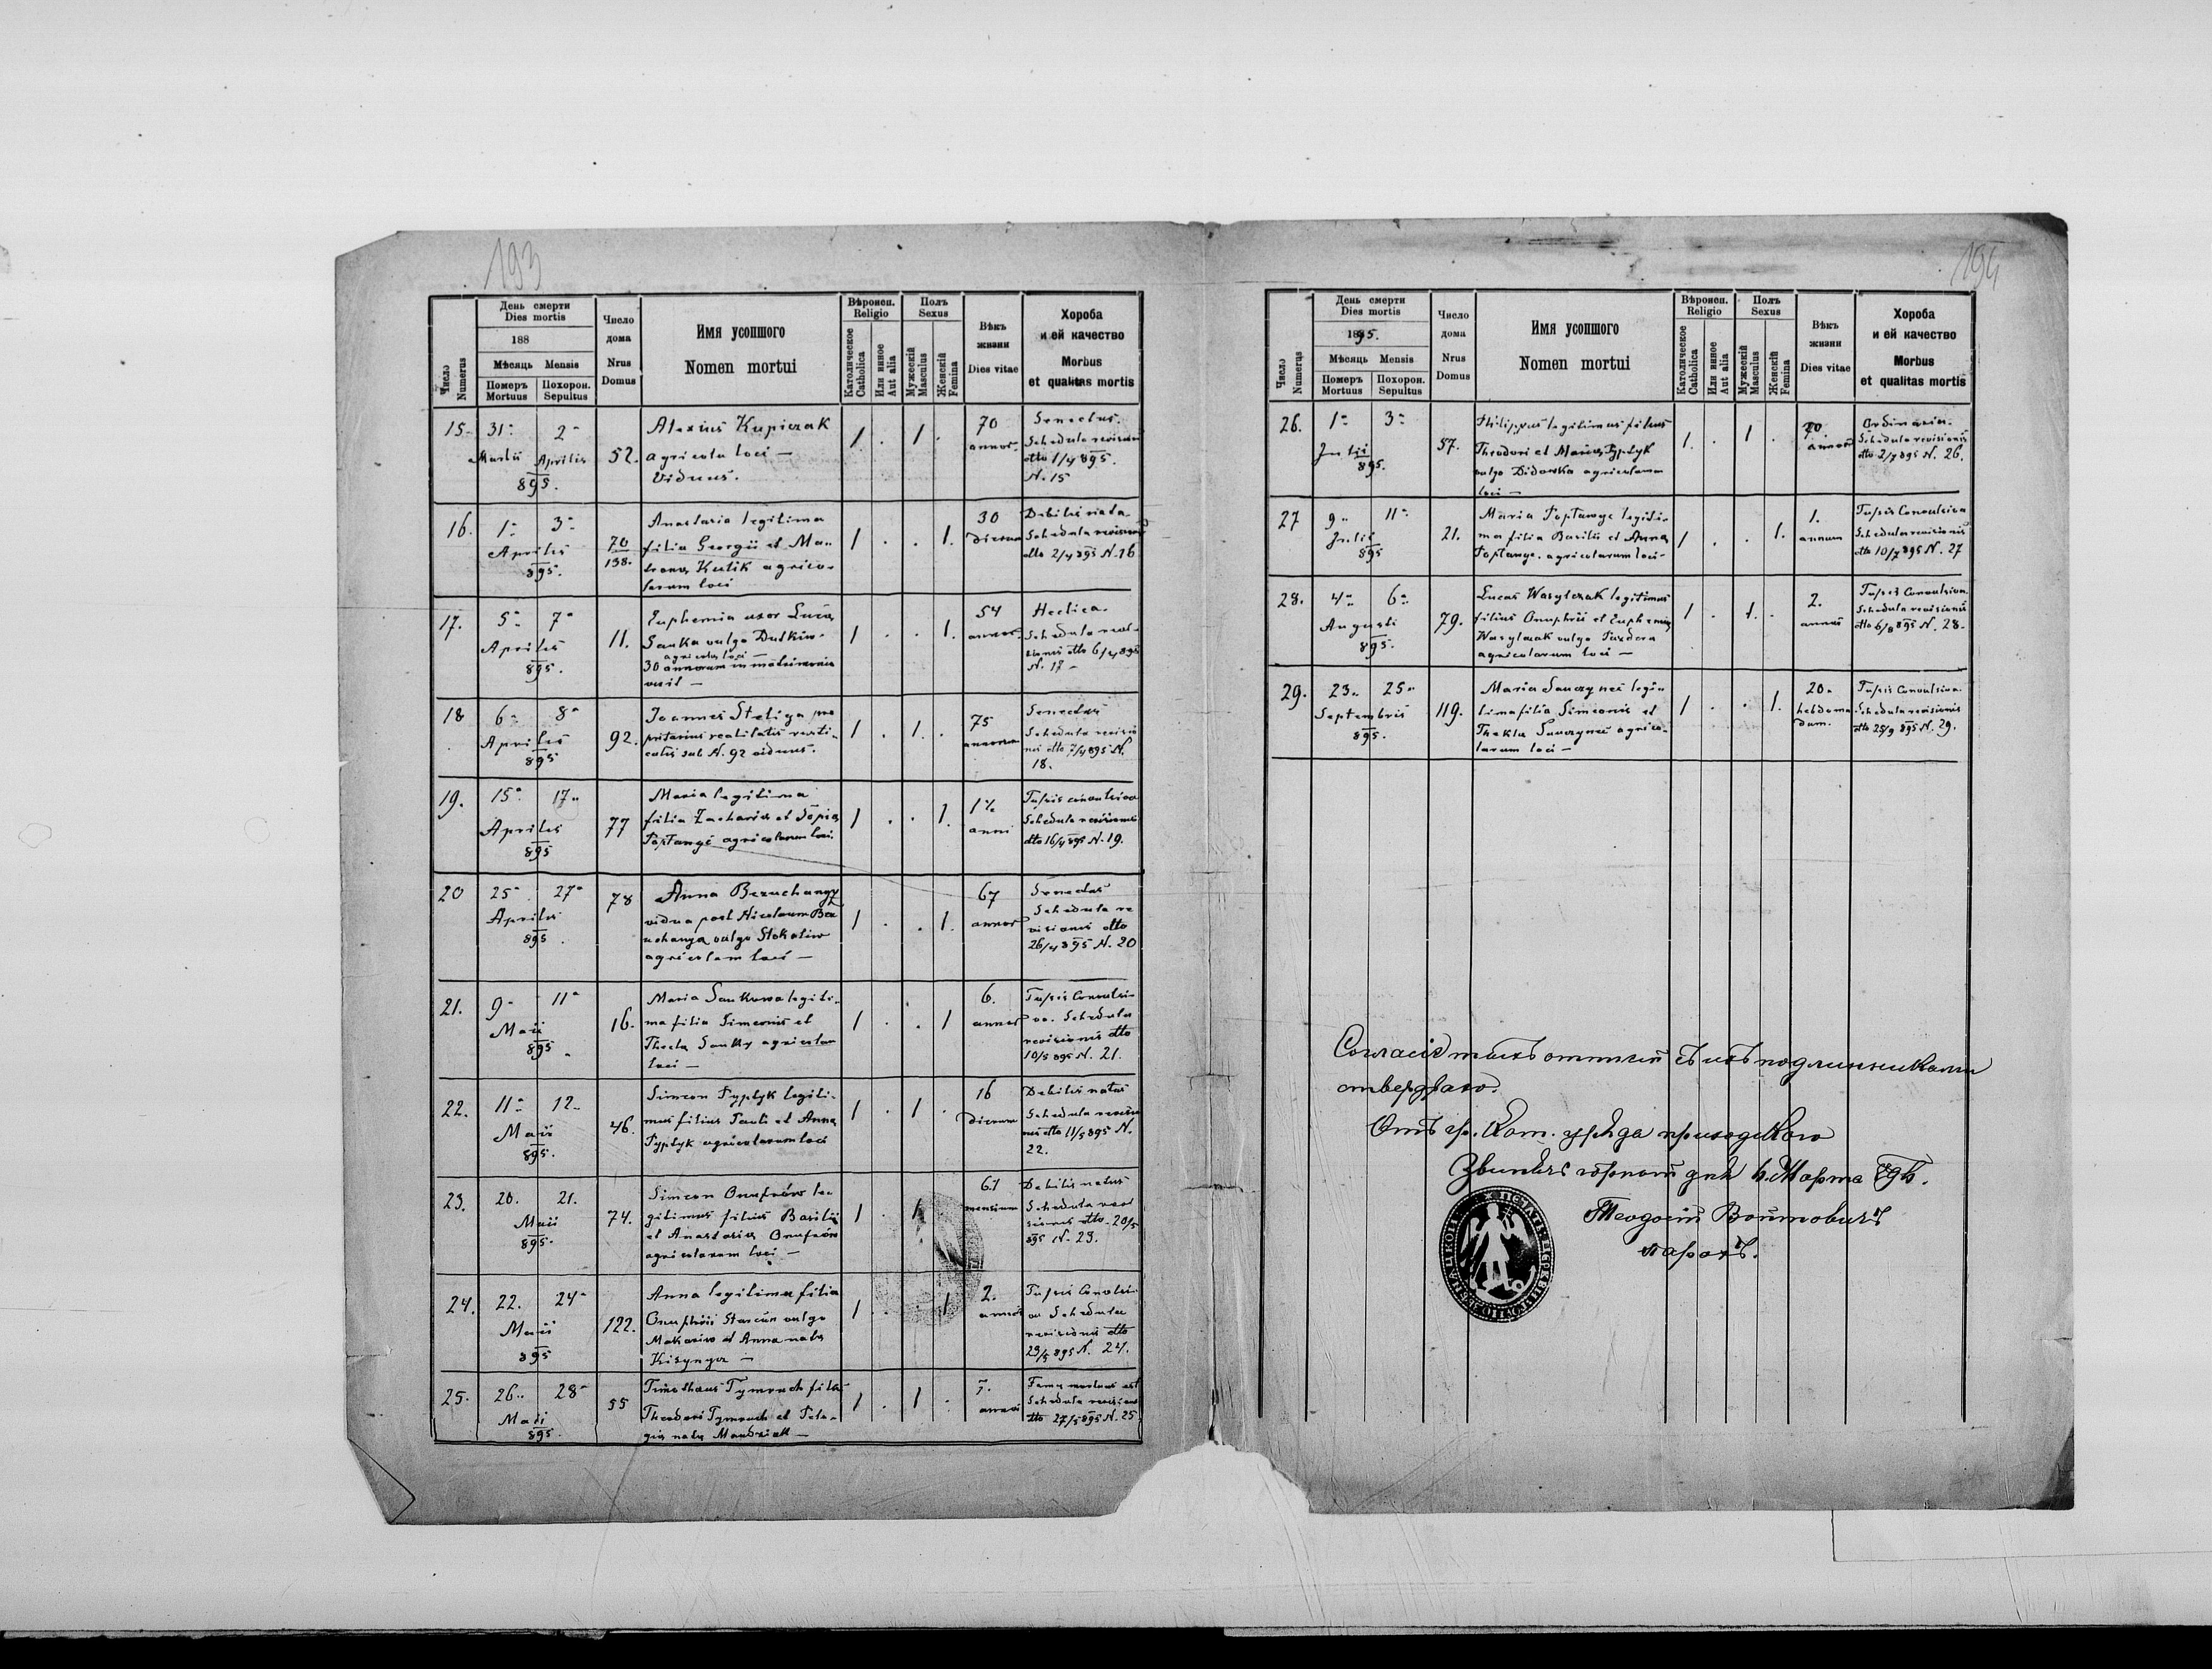 193
День смерти
Dies mortis
188
Мѣсяць Mensis
Числo
Numerus
Померъ
Mortuus
Похорон.
Sepultus
Число
дома
Nrus
Domus
Имя усопшого
Nomen mortui
Вѣроисп.
Religio
Католическое
Catholica
Или инное
Aut alia
Полъ
Sexus
Мужескій
Masculus
Женскій
Femina
Вѣкъ
жизни
Dies vitae
Хороба
и ей качество
Morbus
et qualitas mortis
15. 31 2 52. Alexius Kupiczak 1 . 1 . 70 Senectus.
Martii Aprilis agricola loci — annor. Schedula revisionis
895. Viduus. dtto 1/4 895.
N. 15
16. 1 3 70/138. Anastasia legitima 1 . . 1. 30 Debilis nata
Aprilis filia Georgii et Ma- dierum Schedula revisionis
895. tronae Kulik agrico- dtto 2/4 895 N. 16
larum loci
17. 5 7 11. Euphemia uxor Lucae 1 . . 1. 54 Hectica.
Aprilis Sauka vulgo Dutkiw annor. Schedula revi-
895. agricolae loci — sionis dtto 6/4 895
30 annorum in matrimonio N. 17 —
vixit —
18 6 8 92. Joannes Steliga pro 1 . 1. . 75 Senectus
Aprilis prietarius realitatis rusti- annorum Schedula revisio
895 calis sub N. 92 viduus. nis dtto 7/4 895 N.
18.
19. 15 17 77 Maria legitima 1 . . 1. 1½ Tussis convulsiva
Aprilis filia Zachariae et anni Schedula revisionis
895 agricolarum loci. dtto 16/4 895 N. 19.
20 25 27 78 Anna 1 . . 1. 67 Senectus
Aprilis vidua post Nicolaum annor Schedula re
895. vulgo visionis dtto
agricolam loci — 26/4 895 N. 20
21. 9 11 16. Maria Saukowa legiti- 1 . . 1 6. Tussis Convulsi-
Maii ma filia Simeonis et annor va. Schedula
895 Thecla Sauky agricolar revisionis dtto
loci — 10/5 895 N. 21.
22. 11 12 46. Simeon Pyptyk legiti- 1 . 1 . 16 Debilis natus
Maii mus filius Pauli et Anna dierum Schedula revisio
895. Pyptyk agricolarum loci nis dtto 11/5 895 N.
22.
23. 20. 21. 74. Simeon Onufrów le- 1 . 1 Debilis natus
Maii gitimus filius Basilii mensium Schedula revi
895. et Anastasiae Onufrów sionis dtto 20/5
agricolarum loci — 895 N. 23.
24. 22. 24 122. Anna legitima filia 1 . . 1 2. Tussis Convulsi-
Maii Onuphrii vulgo annor va Schedula
895 et Anna nata revisionis dtto
— 895 N. 24.
25. 26 28 55 Timothaeus Tymruch filius 1 . 1 . annor mortuus est
Maii Theodori Tymruch et Pela- Schedula revisionis
895. giae nata — dtto 27/5 895 N. 25
194
День смерти
Dies mortis
1895.
Мѣсяць Mensis
Числo
Numerus
Померъ
Mortuus
Похорон.
Sepultus
Число
дома
Nrus
Domus
Имя усопшого
Nomen mortui
Вѣроисп.
Religio
Католическое
Catholica
Или инное
Aut alia
Полъ
Sexus
Мужескій
Masculus
Женскій
Femina
Вѣкъ
жизни
Dies vitae
Хороба
и ей качество
Morbus
et qualitas mortis
26. 1 3 57. Philippus legitimus filius 1. . 1 . 70 Ordinaria.
Julii Theodori et Maria Pyptyk annor Schedula revisionis
895. vulgo Didowka agricolarum dtto 2/7 895 N. 26.
loci —
27 9 11 21. Maria legiti- 1 . . 1. 1. Tussis Convulsiva
Julii ma filia Basilii et Anna annum Schedula revisionis
895 agricolarum loci- dtto 10/7 895 N. 27
28. 4 6 79. Lucas Wasylczak legitimus 1 . 1. . 2. Tussis Convulsiva
Augusti filius Onuphrii et Euphemia annor Schedula revisionis
895. Wasylczak vulgo dtto 6/8 895 N. 28.
agricolarum loci —
29. 23 25 119. Maria legi- 1 . . 1. 20 Tussis Convulsiva
Septembris tima filia Simeonis et hebdoma Schedula revisionis
895. Thekla agrico- dum. dtto 25/9 895 N. 29.
larum loci —
Согласіе тыхъ отписій съ ихъ подлинниками
тверджаю.
Отъ гр. кат. уряда приходского
Звинячъ горной дня Марта
Теодосій Войтовичъ
парохъ.